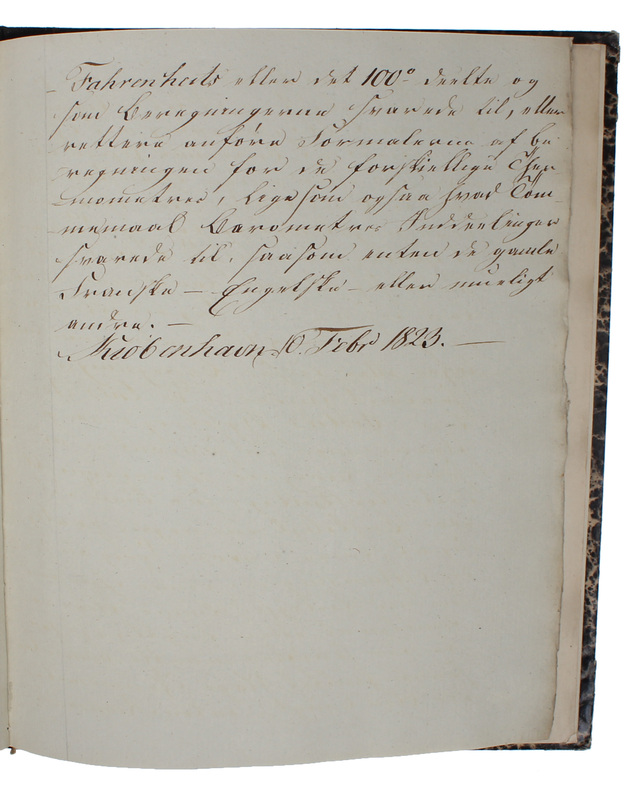 Fahrenheits eller det 100° deelte og
som Beregningerne svarede til, eller
rettere anføre Formalerne af Be-
regningen for de forskiellige Ther-
mometres, ligesom ogsaa hvad Tom-
memaal Barometres Inddeelinger
svarede til, saasom enten de gamle
Franske — Engelske — eller mueligt
andre. —
Kiøbenhavn Febr 1823. —